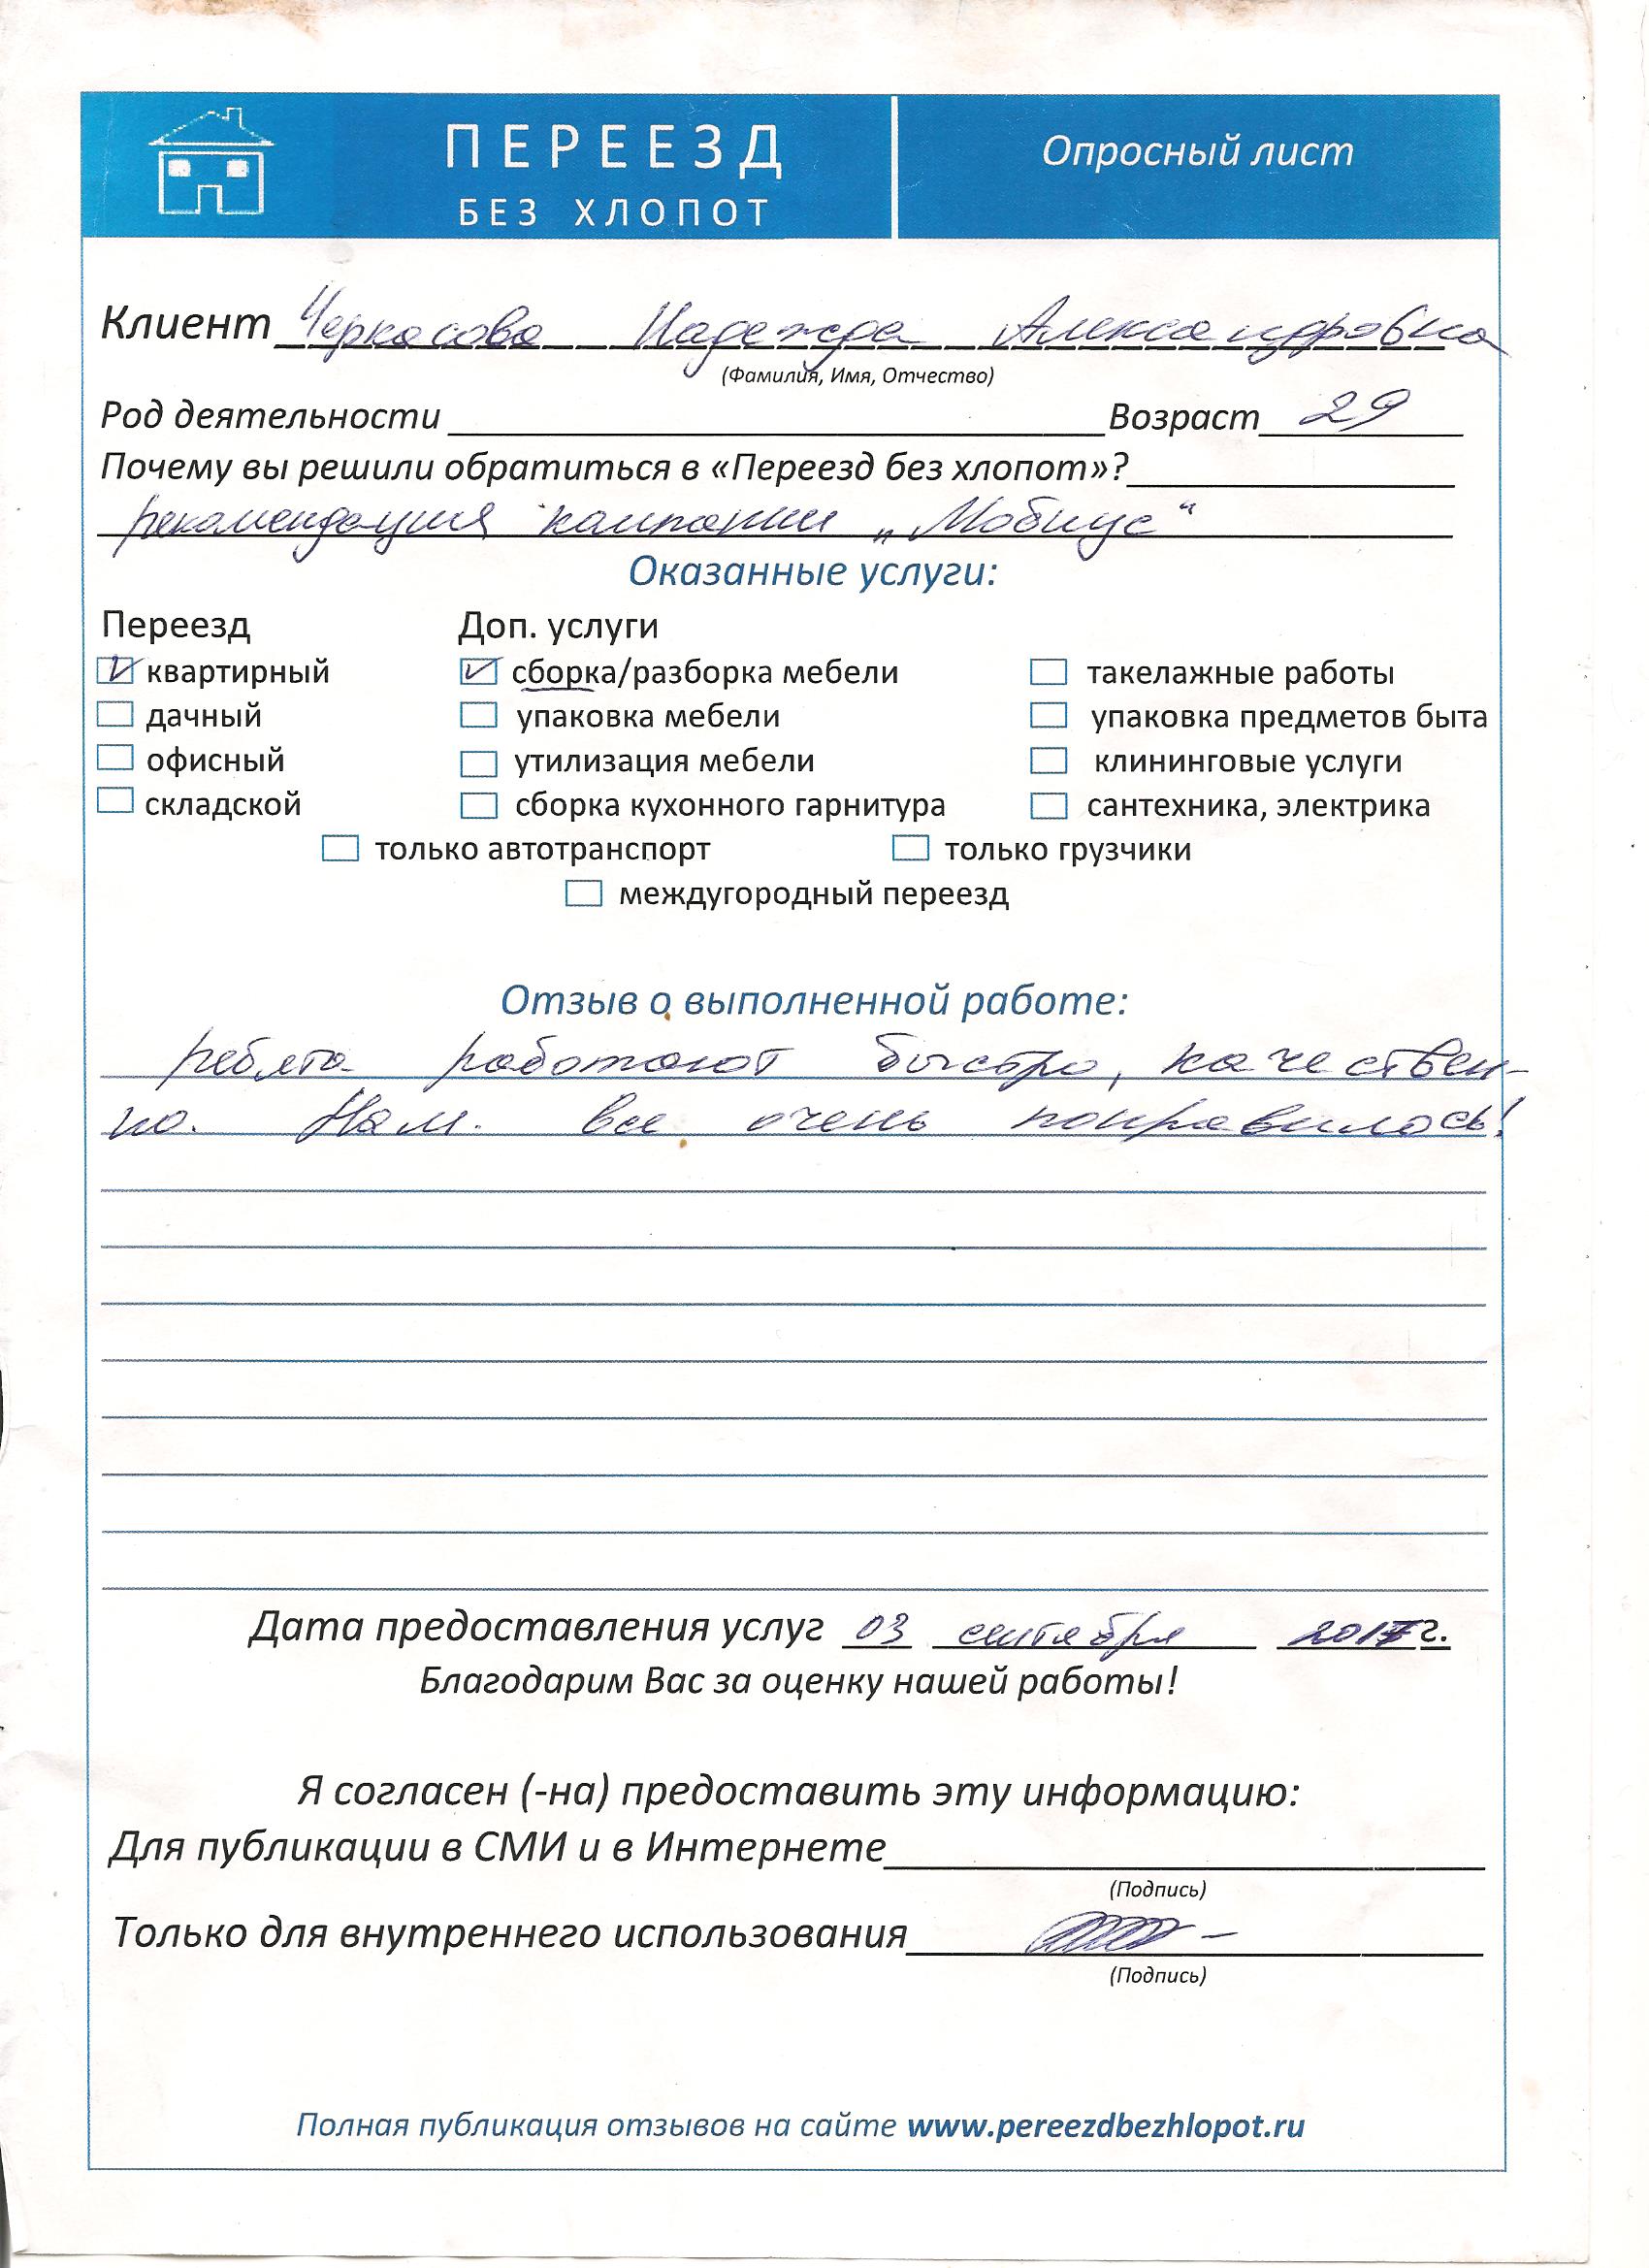 ПЕРЕЕЗД
БЕЗ ХЛОПОТ
Опросный лист
Клиент Черкасова Надежда Александровна
(Фамилия, Имя, Отчество)
Род деятельности Возраст 29
Почему вы решили обратиться в «Переезд без хлопот»?
рекомендация компании „Мобиус“
Оказанные услуги:
Переезд Доп. услуги
квартирный сборка/разборка мебели такелажные работы
дачный упаковка мебели упаковка предметов быта
офисный утилизация мебели клининговые услуги
складской сборка кухонного гарнитура сантехника, электрика
только автотранспорт только грузчики
междугородный переезд
Отзыв о выполненной работе:
ребята работают быстро, качествен-
но. Нам все очень понравилось!
Дата предоставления услуг 03 сентября 2017 г.
Благодарим Вас за оценку нашей работы!
Я согласен (-на) предоставить эту информацию:
Для публикации в СМИ и в Интернете
(Подпись)
Только для внутреннего использования
(Подпись)
Полная публикация отзывов на сайте www.pereezdbezhlopot.ru